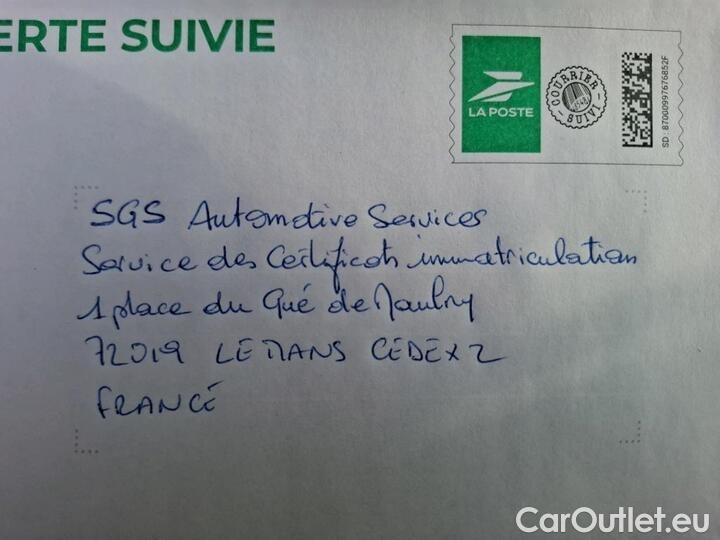 ERTE SUIVIE
LA POSTE
COURRIER SUIVI
SD : 87000997676852F
SGS Automotive Services
Service des Certificats immatriculation
1 place du Gué de Maulny
72019 LE MANS CEDEX 2
FRANCE
CarOutlet.eu